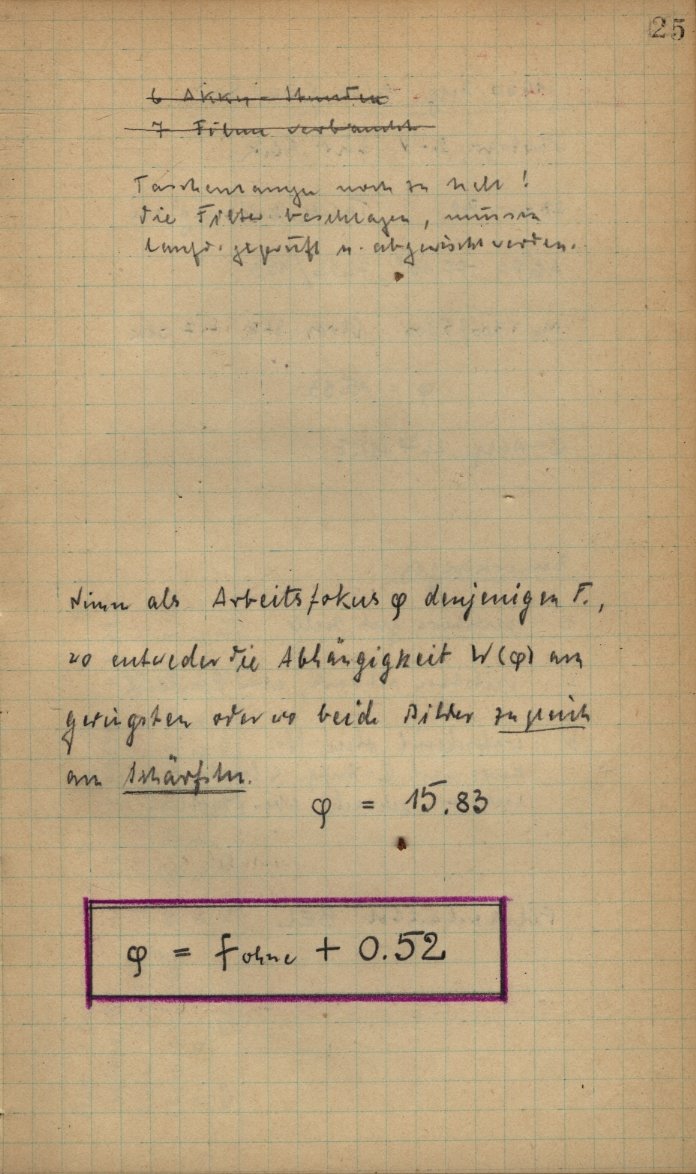 25
6 Akku-Stunden
7 Filme verbraucht
Taschenlampe noch zu hell!
die Filter beschlagen, müssen
geprüft u. abgewischt werden.
Nimm als Arbeitsfokus φ denjenigen F.,
wo entweder die Abhängigkeit W(φ) am
geringsten oder wo beide Bilder zugleich
am schärfsten.
φ = 15.83
φ = f ohne + 0.52